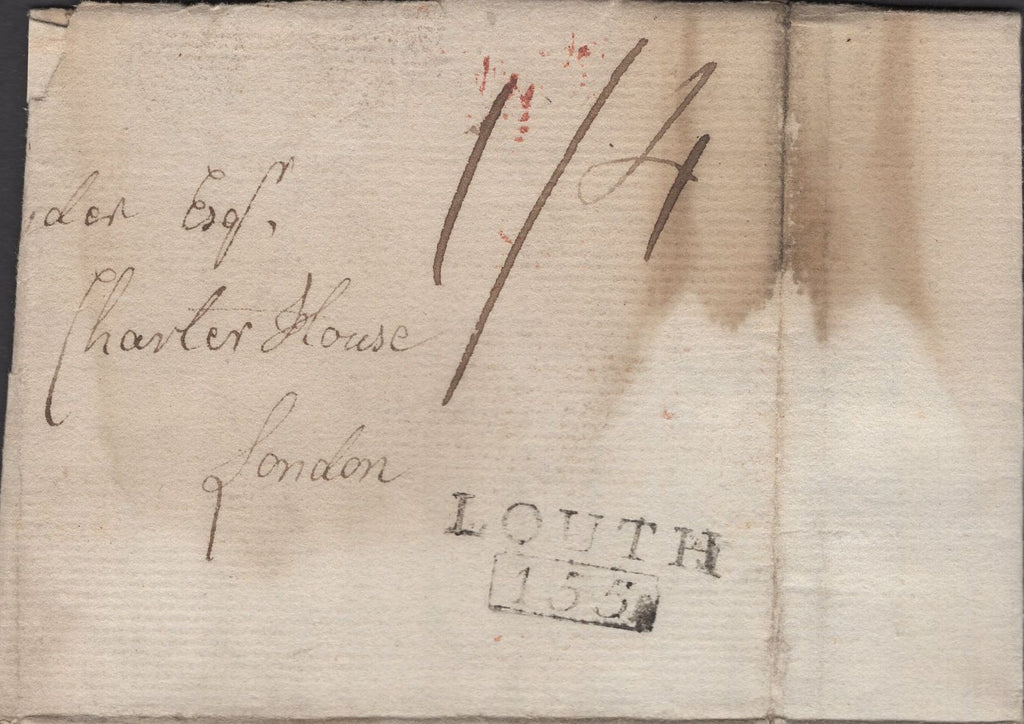 1/4
der Esqr,
Charter House
London
LOUTH
155